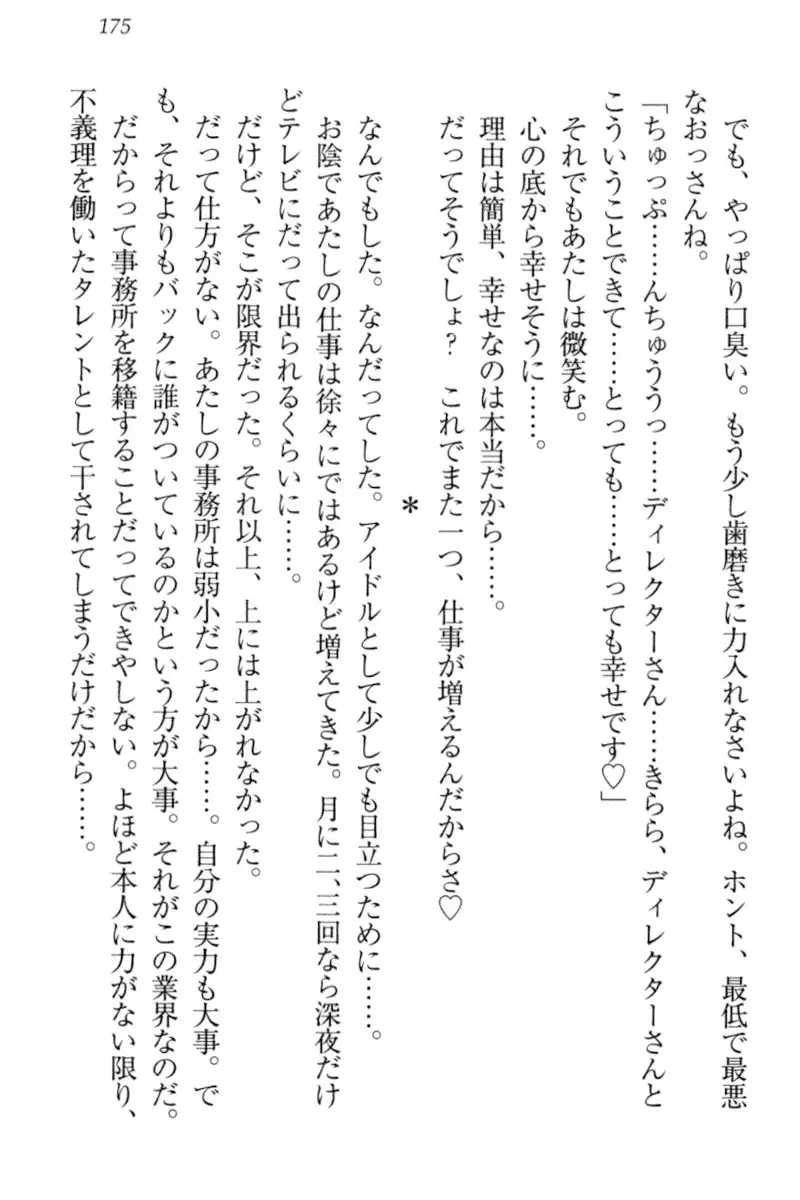 175
でも、やっぱり口臭い。もう少し歯磨きに力入れなさいよね。ホント、最低で最悪
なおっさんね。
「ちゅっぷ……んちゅううっ……ディレクターさん……きらら、ディレクターさんと
こういうことできて……とっても……とっても幸せです♡」
それでもあたしは微笑む。
心の底から幸せそうに……。
理由は簡単、幸せなのは本当だから……。
だってそうでしょ？　これでまた一つ、仕事が増えるんだからさ♡
＊
なんでもした。なんだってした。アイドルとして少しでも目立つために……。
お陰であたしの仕事は徐々にではあるけど増えてきた。月に二、三回なら深夜だけ
どテレビにだって出られるくらいに……。
だけど、そこが限界だった。それ以上、上には上がれなかった。
だって仕方がない。あたしの事務所は弱小だったから……。自分の実力も大事。で
も、それよりもバックに誰がついているのかという方が大事。それがこの業界なのだ。
だからって事務所を移籍することだってできやしない。よほど本人に力がない限り、
不義理を働いたタレントとして干されてしまうだけだから……。